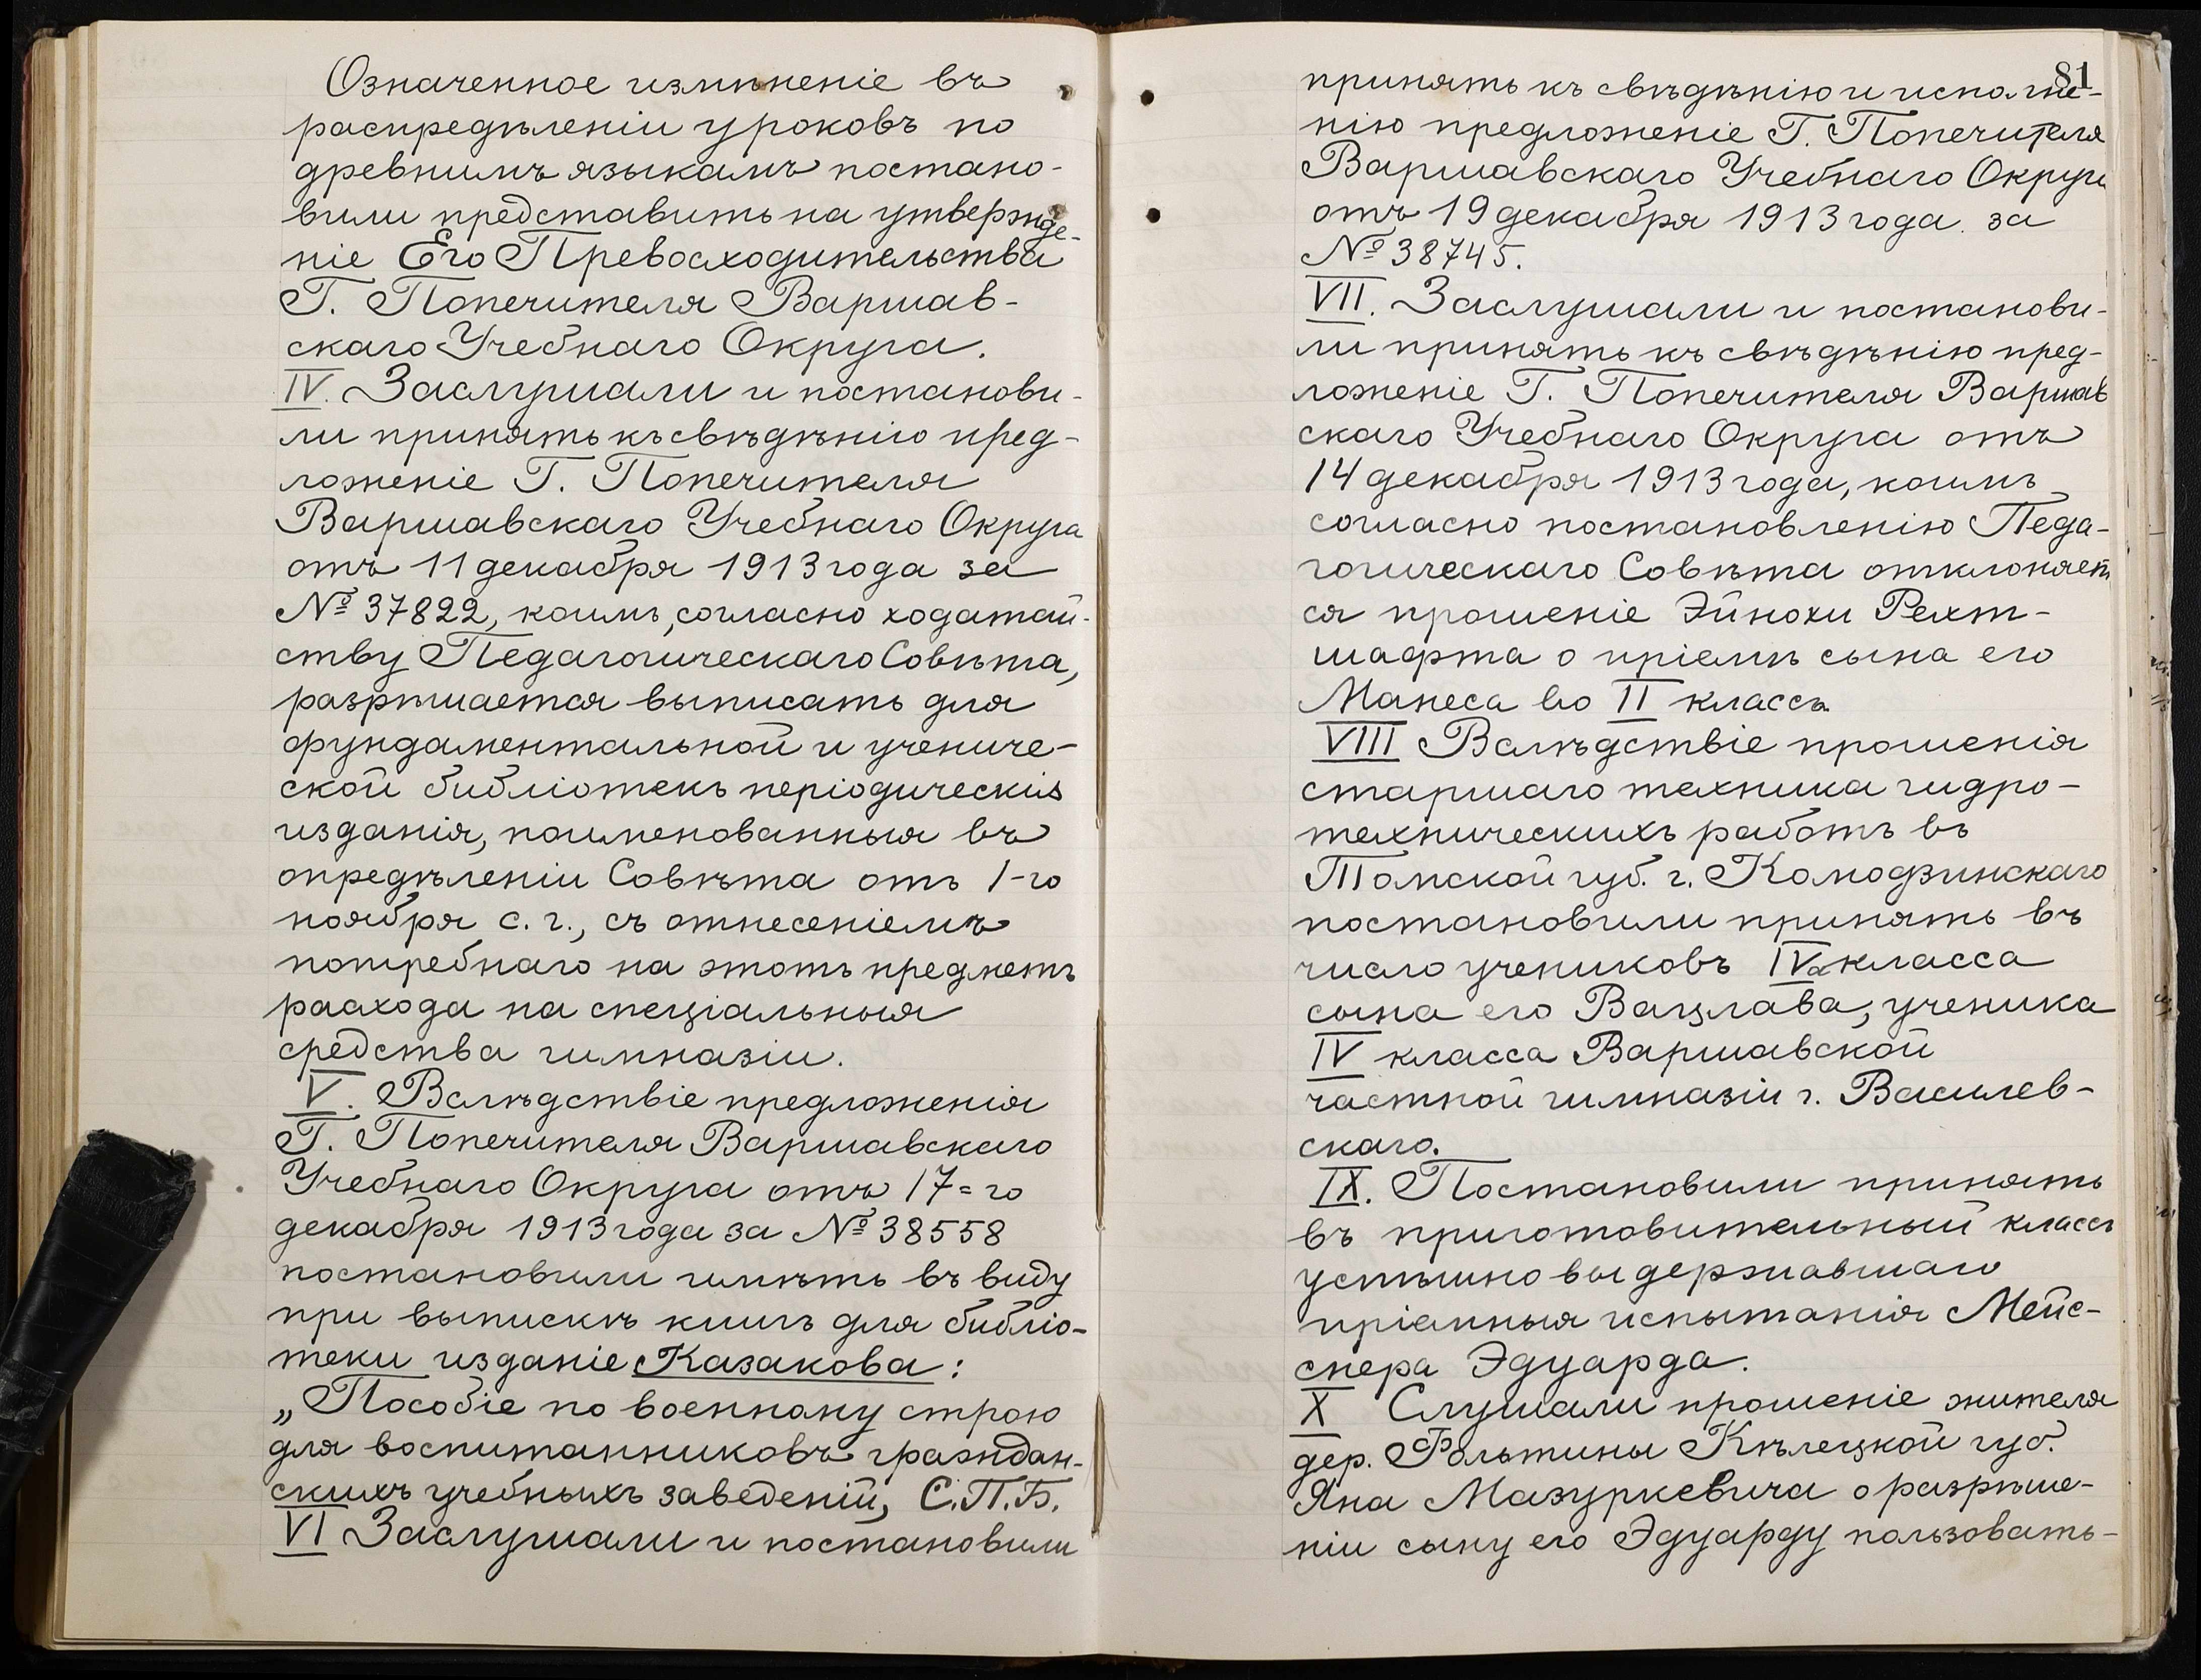 Означенное измѣненіе въ
распредѣленіи уроковъ по
древнимъ языкамъ постано-
вили представить на утвержде-
ніе Его Превосходительства
Г. Попечителя Варшав-
скаго Учебнаго Округа.
IV. Заслушали и постанови-
ли принять къ свѣдѣнію пред-
ложеніе Г. Попечителя
Варшавскаго Учебнаго Округа
отъ 11 декабря 1913 года за
№ 37822, коимъ, согласно ходатай-
ству Педагогическаго Совѣта,
разрѣшается выписать для
фундаментальной и учениче-
ской библіотекъ періодическія
изданія, поименованныя въ
опредѣленіи Совѣта отъ 1-го
ноября с. г., съ отнесеніемъ
потребнаго на этотъ предметъ
расхода на спеціальныя
средства гимназіи.
V. Вслѣдствіе предложенія
Г. Попечителя Варшавскаго
Учебнаго Округа отъ 17=го
декабря 1913 года за № 38558
постановили имѣть въ виду
при выпискѣ книгъ для библіо-
теки изданіе Казакова:
„Пособіе по военному строю
для воспитанниковъ граждан-
скихъ учебныхъ заведеній, С.П.Б.
VI Заслушали и постановили
81
принять къ свѣдѣнію и исполне-
нію предложеніе Г. Попечителя
Варшавскаго Учебнаго Округа
отъ 19 декабря 1913 года за
№ 38745.
VII. Заслушали и постанови-
ли принять къ свѣдѣнію пред-
ложеніе Г. Попечителя Варшав
скаго Учебнаго Округа отъ
14 декабря 1913 года, коимъ
согласно постановленію Педа-
гогическаго Совѣта отклоняет
ся прошеніе Эйнохи Рехт-
шафта о пріемѣ сына его
Манеса во II классъ.
VIII Вслѣдствіе прошенія
старшаго техника гидро-
техническихъ работъ въ
Томской губ. г. Комодзинскаго
постановили принять въ
число учениковъ IVа класса
сына его Вацлава, ученика
IV класса Варшавской
частной гимназіи г. Василев-
скаго.
IX. Постановили принять
въ приготовительный классъ
успѣшно выдержавшаго
пріемныя испытанія Мейс-
снера Эдуарда.
X Слушали прошеніе жителя
дер. Фольтины Кѣлецкой губ.
Яна Мазуркевича о разрѣше-
ніи сыну его Эдуарду пользовать-